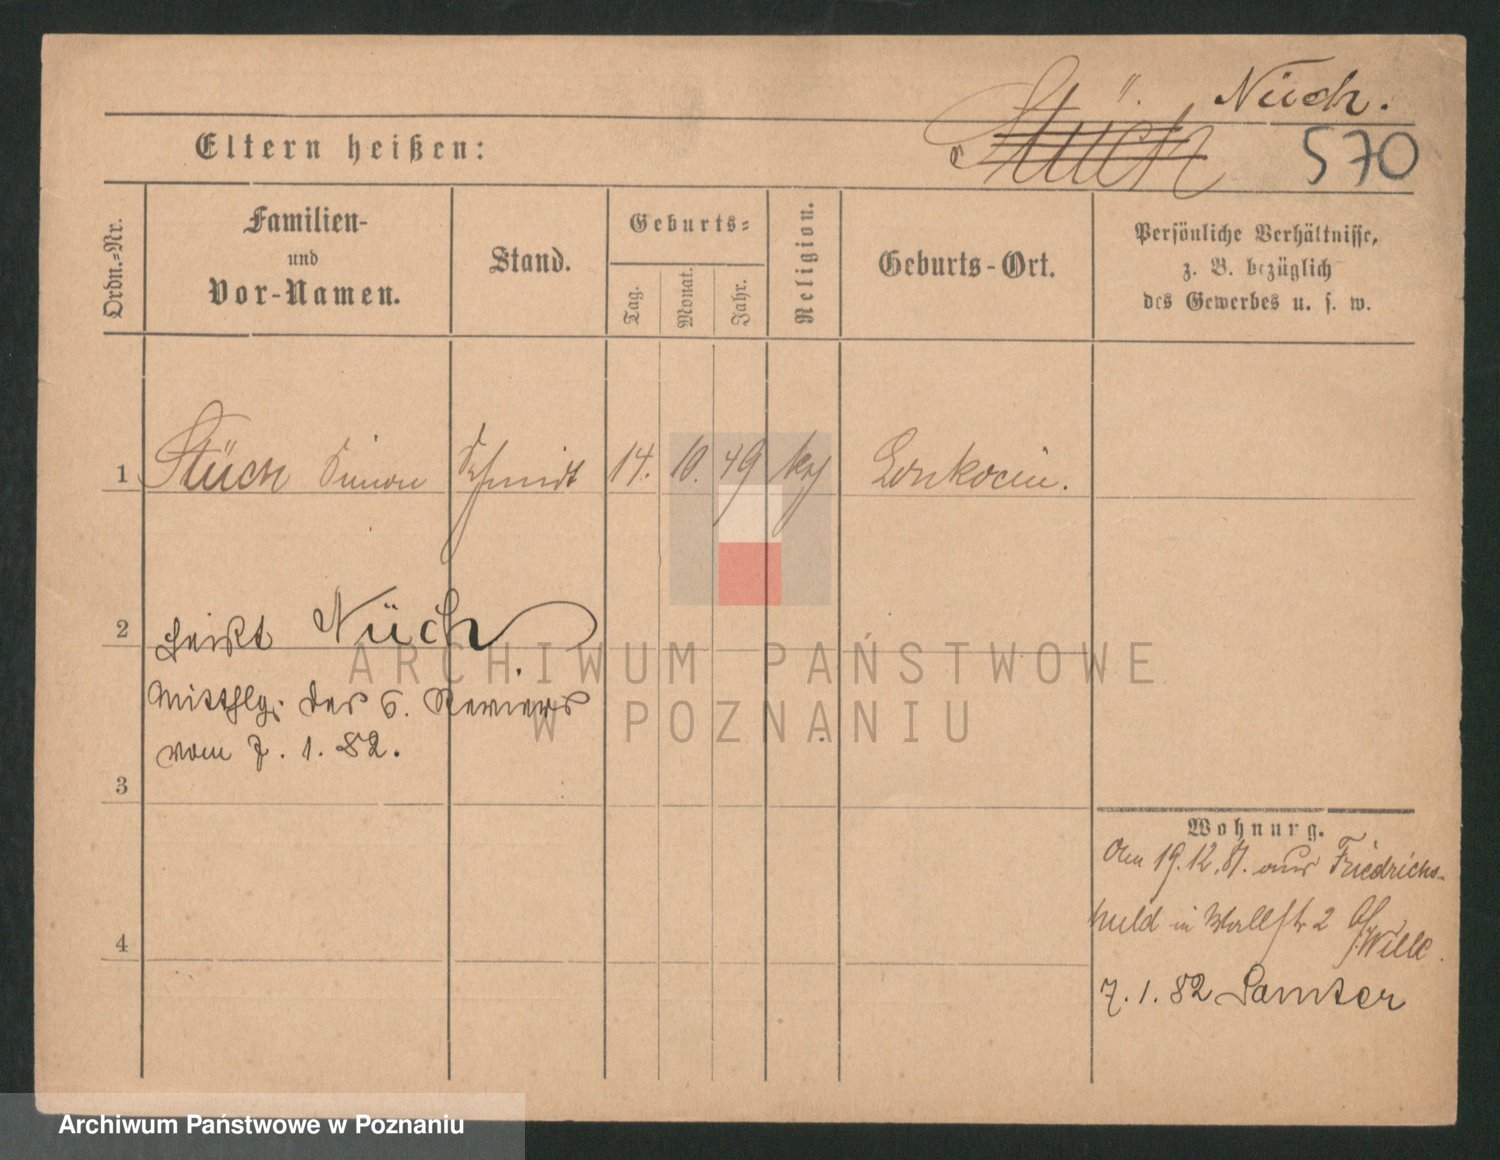 Nüch.
Stück
570
Eltern heißen:
Ordn.-Nr.
Familien-
und
Vor-Namen.
Stand.
Geburts-
Tag.
Monat.
Jahr.
Religion.
Geburts-Ort.
Persönliche Verhältnisse,
z. B. bezüglich
des Gewerbes u. s. w.
1 Stüch Simon Schmidt 14. 10. 49 Lonkocin.
2 heißt Nüch
Mitthlg. des 6. Reviers
vom 7. 1. 82.
3
Wohnung.
Am 19.12.81. aus Friedrichs-
huld in Wallstr 2 b/Wille.
4
7. 1. 82 Samter
ARCHIWUM PAŃSTWOWE
W POZNANIU
Archiwum Państwowe w Poznaniu